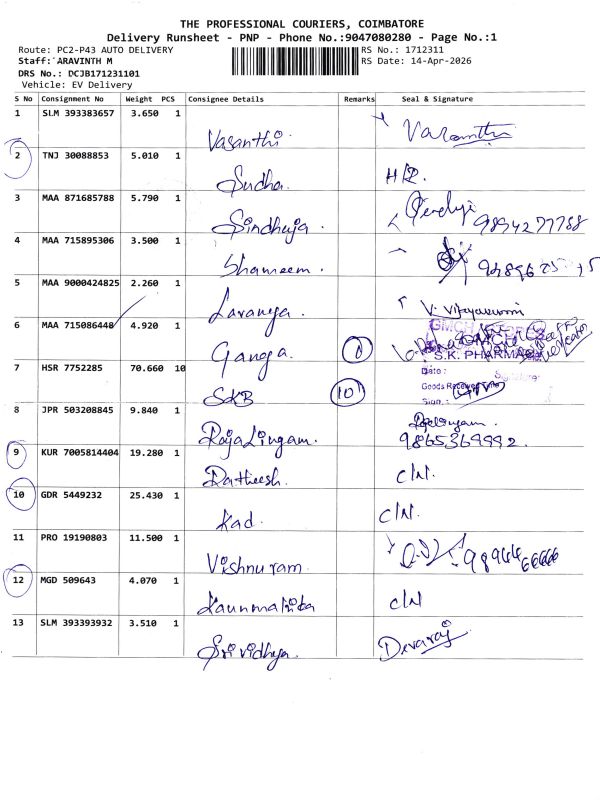 THE PROFESSIONAL COURIERS, COIMBATORE
Delivery Runsheet - PNP - Phone No.:9047080280 - Page No.:1
Route: PC2-P43 AUTO DELIVERY RS No.: 1712311
Staff: ARAVINTH M RS Date: 14-Apr-2026
DRS No.: DCJB171231101
Vehicle: EV Delivery
S No Consignment No Weight PCS Consignee Details Remarks Seal & Signature
1 SLM 393383657 3.650 1 Vasanthi
2 TNJ 30088853 5.010 1 Sudha.
3 MAA 871685788 5.790 1 Sindhuja. 9894277788
4 MAA 715895306 3.500 1 Shameem.
5 MAA 9000424825 2.260 1 Lavanya.
6 MAA 715086448 4.920 1 Ganga. 1
S.K. PHARMACY
7 HSR 7752285 70.660 10 SKB 10
Date:
Goods Received
Sign.:
8 JPR 503208845 9.840 1 RajaLingam. 9865369992.
9 KUR 7005814404 19.280 1 Ratheesh. C/N.
10 GDR 5449232 25.430 1 Kad. C/N.
11 PRO 19190803 11.500 1 Vishnuram.
12 MGD 509643 4.070 1 C/N
13 SLM 393393932 3.510 1 Srividhya. Devaraj